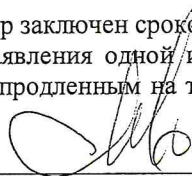 р заключен сроко
явления одной и
продленным на т